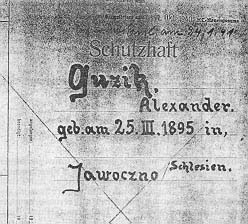 Schutzhaft
Guzik,
Alexander.
geb. am 25. III. 1895 in,
Jawoczno / Schlesien.